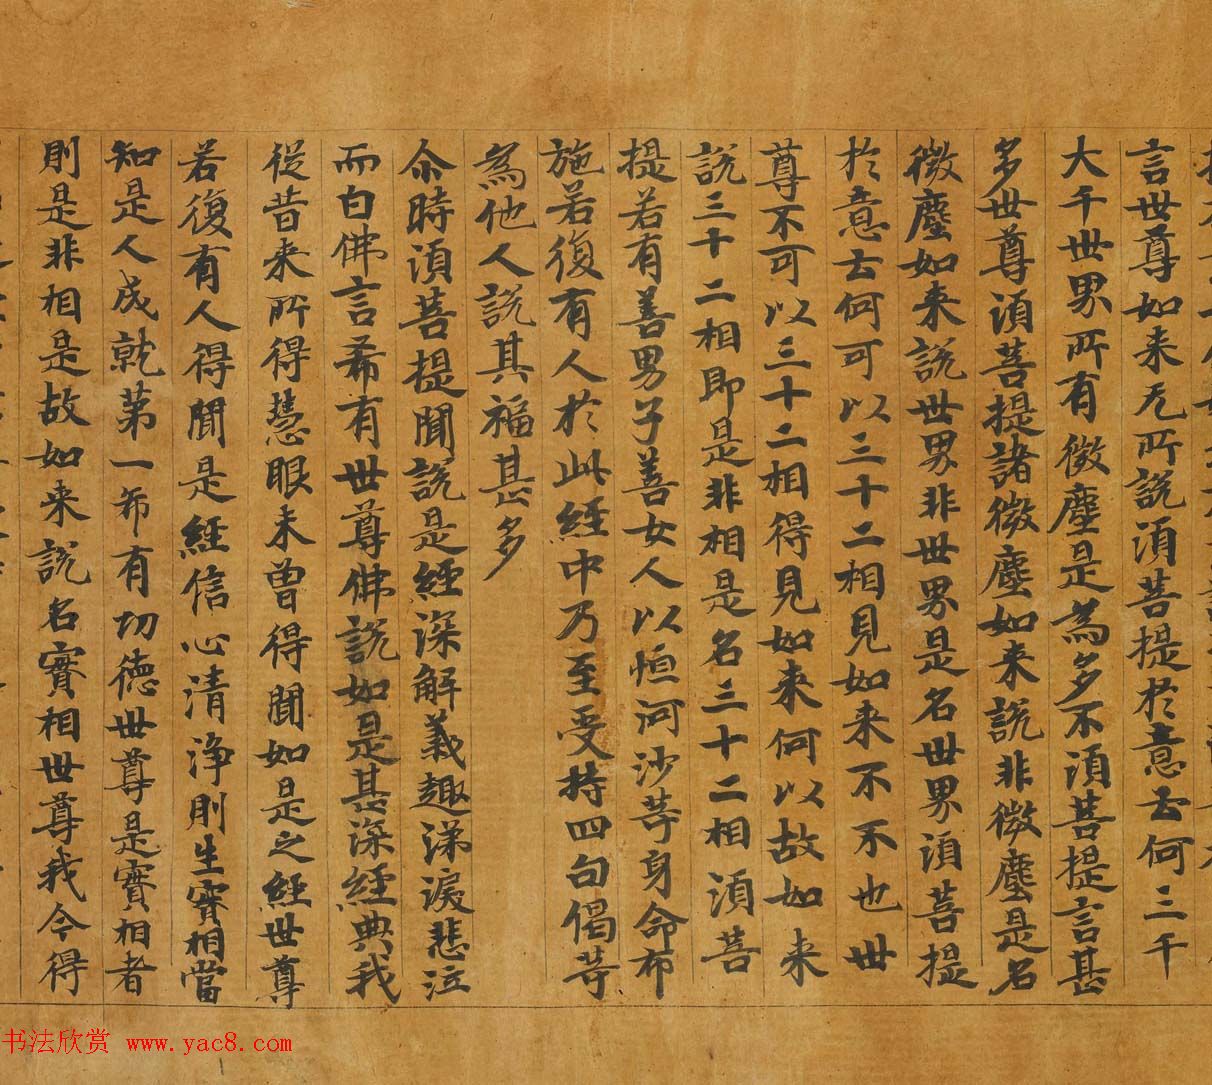 言世尊如来无所說須菩提於意云何三千
大千世界所有微塵是為多不須菩提言甚
多世尊須菩提諸微塵如来說非微塵是名
微塵如来說世界非世界是名世界須菩提
於意云何可以三十二相見如来不不也世
尊不可以三十二相得見如来何以故如来
說三十二相即是非相是名三十二相須菩
提若有善男子善女人以恒河沙等身命布
施若復有人於此經中乃至受持四句偈等
為他人說其福甚多
尒時須菩提聞說是經深解義趣涕淚悲泣
而白佛言希有世尊佛說如是甚深經典我
從昔来所得慧眼未曾得聞如是之經世尊
若復有人得聞是經信心清淨則生實相當
知是人成就第一希有功德世尊是實相者
則是非相是故如来說名實相世尊我今得
书法欣赏 www.yac8.com